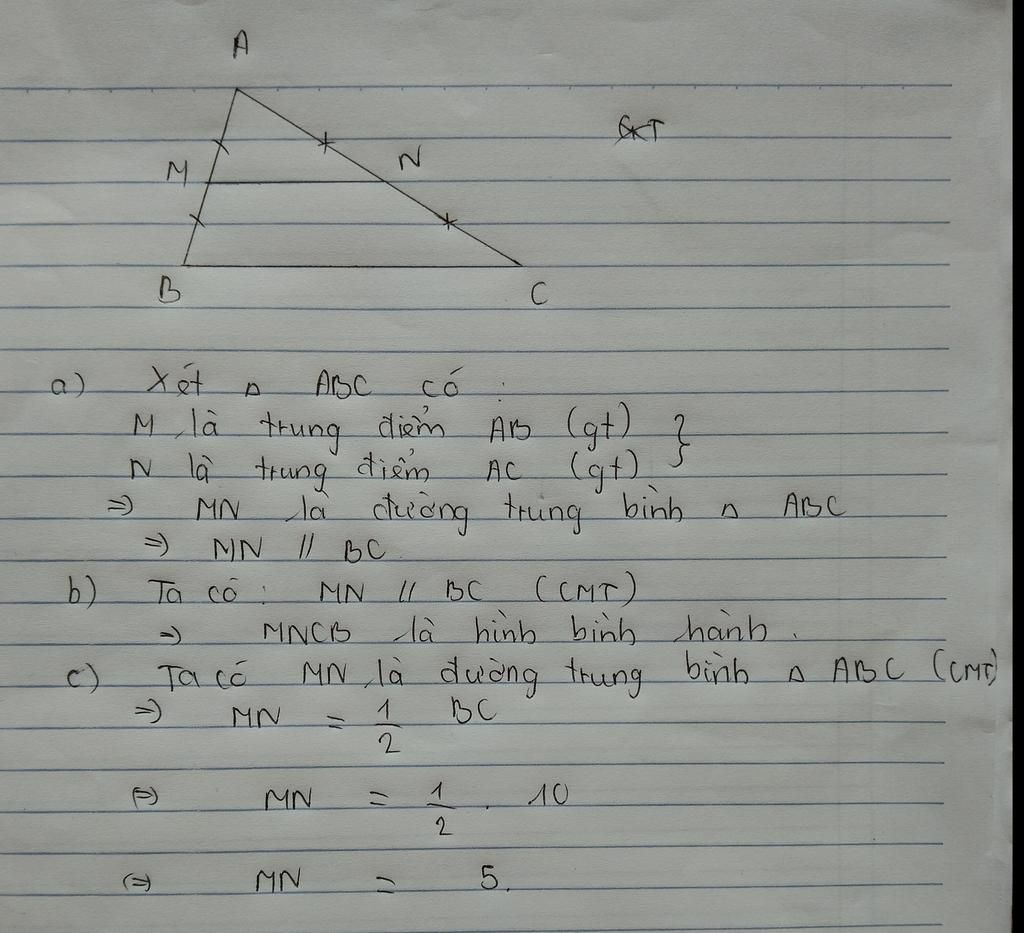 A
M
N
B
C
a) Xét Δ ABC có :
M là trung điểm AB (gt) }
N là trung điểm AC (gt)
=> MN là đường trung bình Δ ABC
=> MN // BC
b) Ta có : MN // BC (CMT)
=> MNCB là hình bình hành .
c) Ta có MN là đường trung bình Δ ABC (CMT)
=> MN = 1/2 BC
<=> MN = 1/2 . 10
<=> MN = 5.